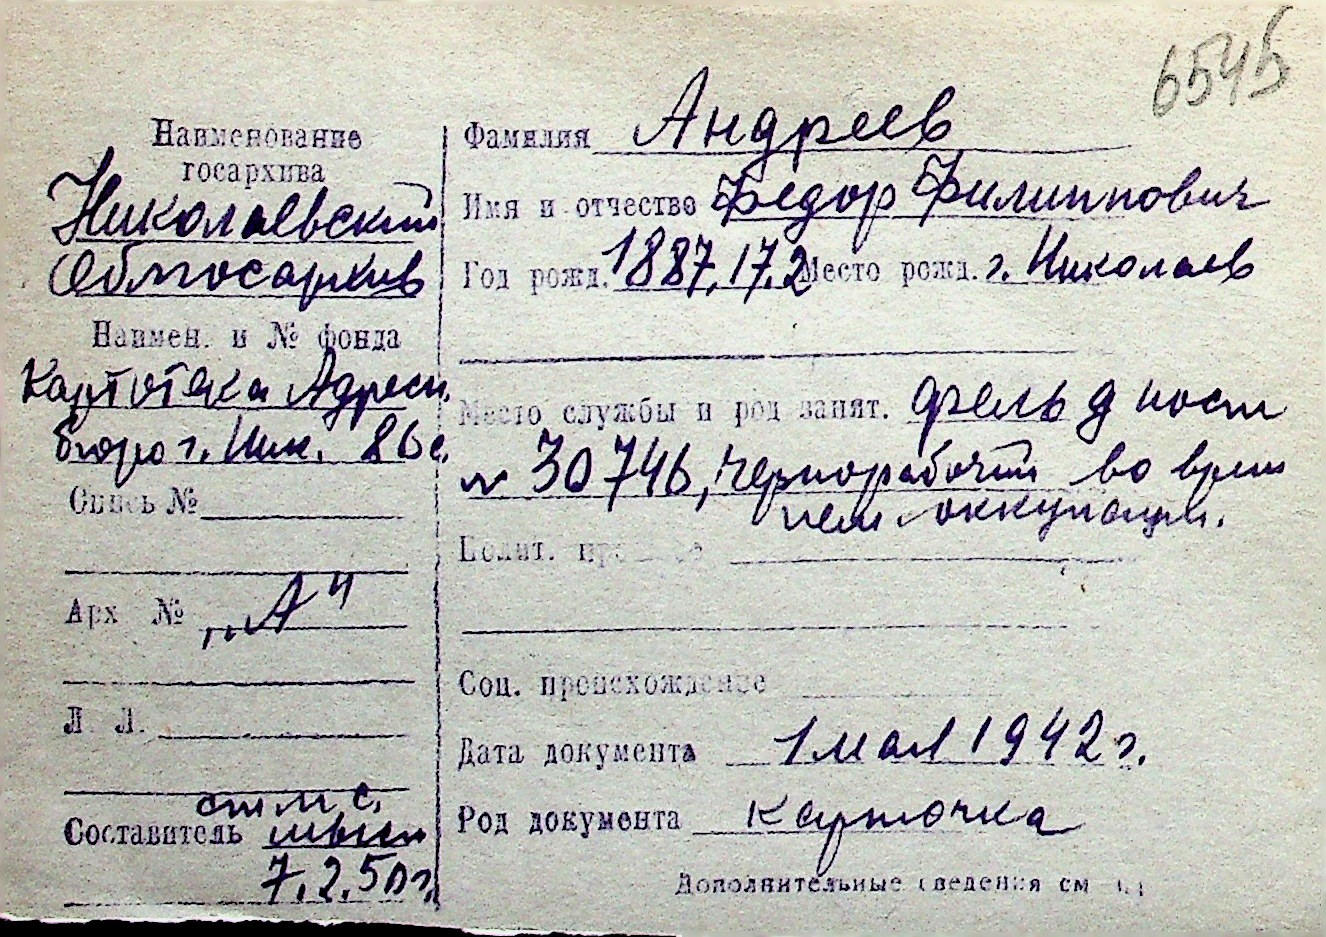 6545
Наименование
госархива
Николаевский
Облгосархив
Наимен. и № фонда
Картотека Адресн.
бюро г. Ник.
Опись №
Арх №
„А“
Л Л.
Составитель
7.2.50г.
Фамилия Андреев
Имя и отчество Федор Филиппович
Год рожд. 1887.17.2 Место рожд. г. Николаев
Место службы и род занят. фельд пост
№ 30746, чернорабочий во вре
мя оккупации.
Полит.
Соц. происхождение
Дата документа 1 мая 1942 г.
Род документа карточка
Дополнительные сведения см